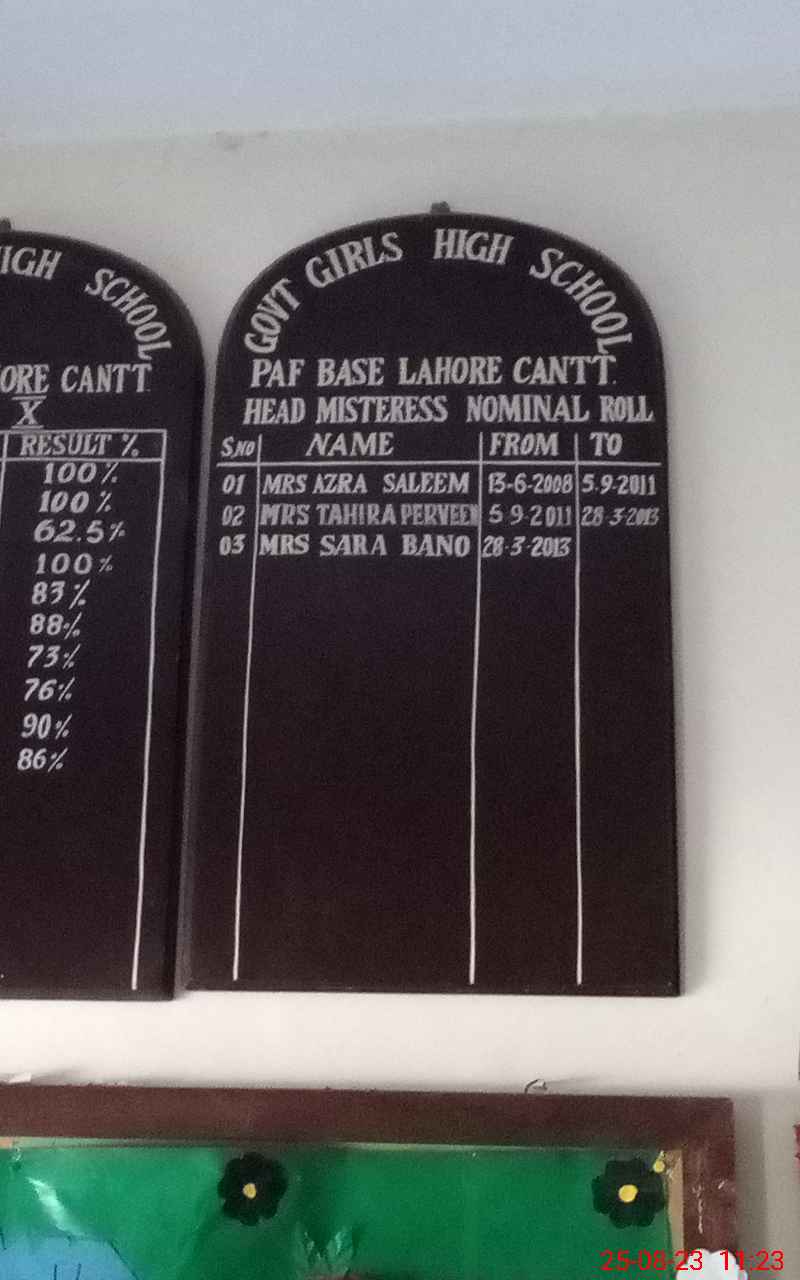 IGH SCHOOL
ORE CANTT
X
RESULT %
100%
100%
62.5%
100%
83%
88%
73%
76%
90%
86%
GOVT GIRLS HIGH SCHOOL
PAF BASE LAHORE CANTT.
HEAD MISTERESS NOMINAL ROLL
S.NO NAME FROM TO
01 MRS AZRA SALEEM 13-6-2008 5.9-2011
02 MRS TAHIRA PERVEEN 5-9-2011 28-3-2013
03 MRS SARA BANO 28-3-2013
25-08-23 11:23